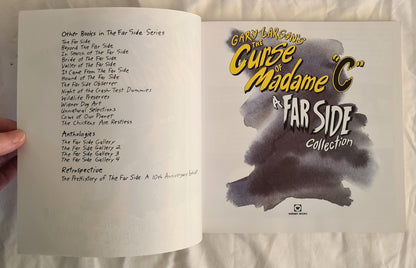 Other Books in The Far Side Series
The Far Side
Beyond The Far Side
In Search of The Far Side
Bride of The Far Side
Valley of The Far Side
It Came From The Far Side
Hound of The Far Side
The Far Side Observer
Night of the Crash-Test Dummies
Wildlife Preserves
Wiener Dog Art
Unnatural Selections
Cows of Our Planet
The Chickens Are Restless
Anthologies
The Far Side Gallery
The Far Side Gallery 2
The Far Side Gallery 3
The Far Side Gallery 4
Retrospective
The PreHistory of The Far Side: A 10th Anniversary Exhibit
GARY LARSON'S
THE
Curse
OF
Madame "C"
A
FAR SIDE
Collection
WARNER BOOKS